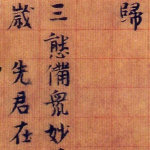 歸
三態備眾妙
歲 先君在